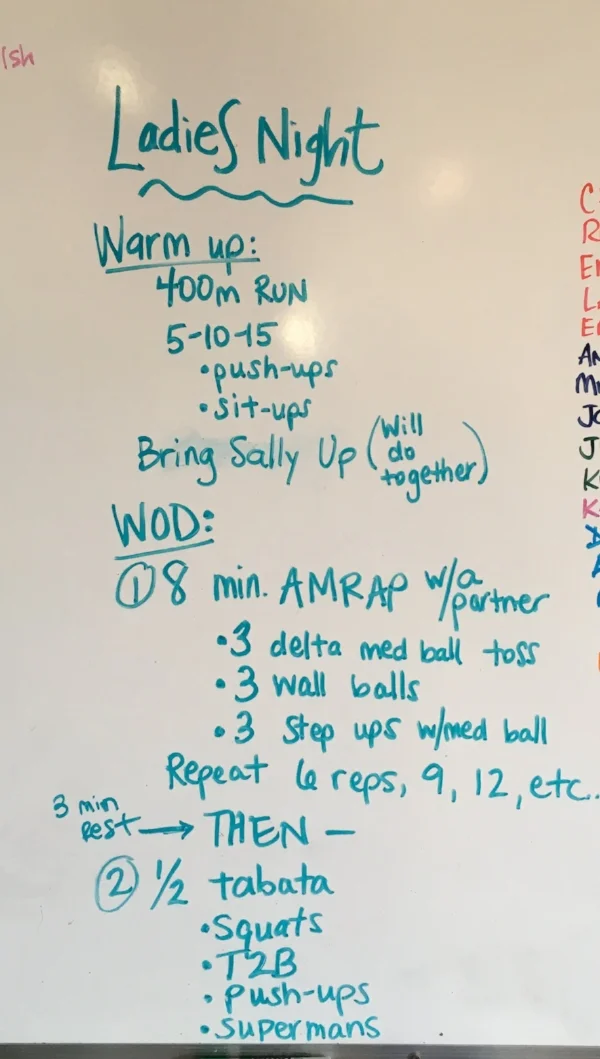 Ladies Night
Warm up:
400m RUN
5-10-15
•push-ups
•sit-ups
Bring Sally Up (Will do together)
WOD:
① 8 min. AMRAP w/a partner
•3 delta med ball toss
•3 wall balls
•3 Step ups w/med ball
Repeat 6 reps, 9, 12, etc..
3 min Rest → THEN —
② 1/2 tabata
•Squats
•T2B
•Push-ups
•Supermans